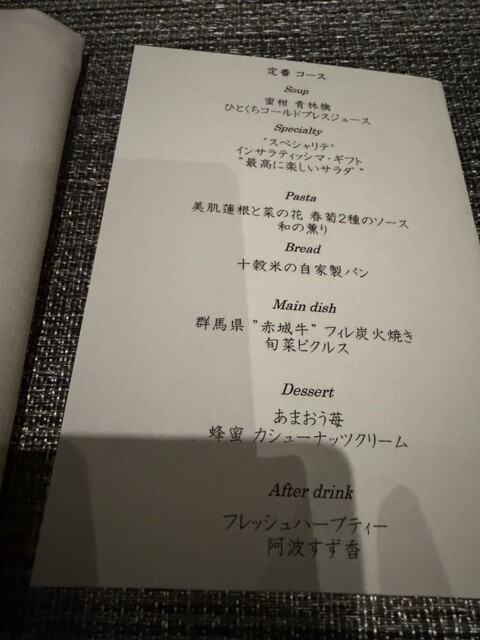 定番 コース
Soup
蜜柑 青林檎
ひとくちコールドプレスジュース
Specialty
"スペシャリテ"
インサラティッシマ・ギフト
"最高に楽しいサラダ"
Pasta
美肌蓮根と菜の花 春菊2種のソース
和の薫り
Bread
十穀米の自家製パン
Main dish
群馬県 "赤城牛" フィレ炭火焼き
旬菜ピクルス
Dessert
あまおう苺
蜂蜜 カシューナッツクリーム
After drink
フレッシュハーブティー
阿波すず香